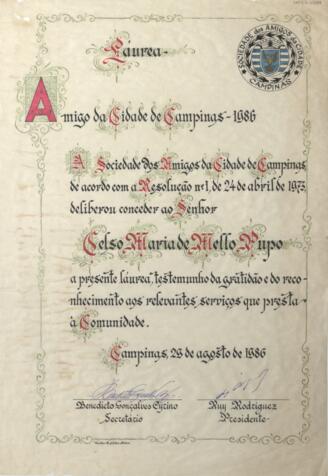 Laurea-
SOCIEDADE dos AMIGOS da CIDADE
CAMPINAS
Amigo da Cidade de Campinas - 1986
A Sociedade dos Amigos da Cidade de Campinas
de acordo com a Resolução nº1, de 24 de abril de 1973,
deliberou conceder ao Senhor
Celso Maria de Mello Pupo
a presente láurea, testemunho da gratidão e do reco-
nhecimento aos relevantes serviços que presta
à Comunidade.
Campinas, 29 de agosto de 1986
Benedicto Gonçalves Cyrino
Secretário
Ruy Rodriguez
Presidente-